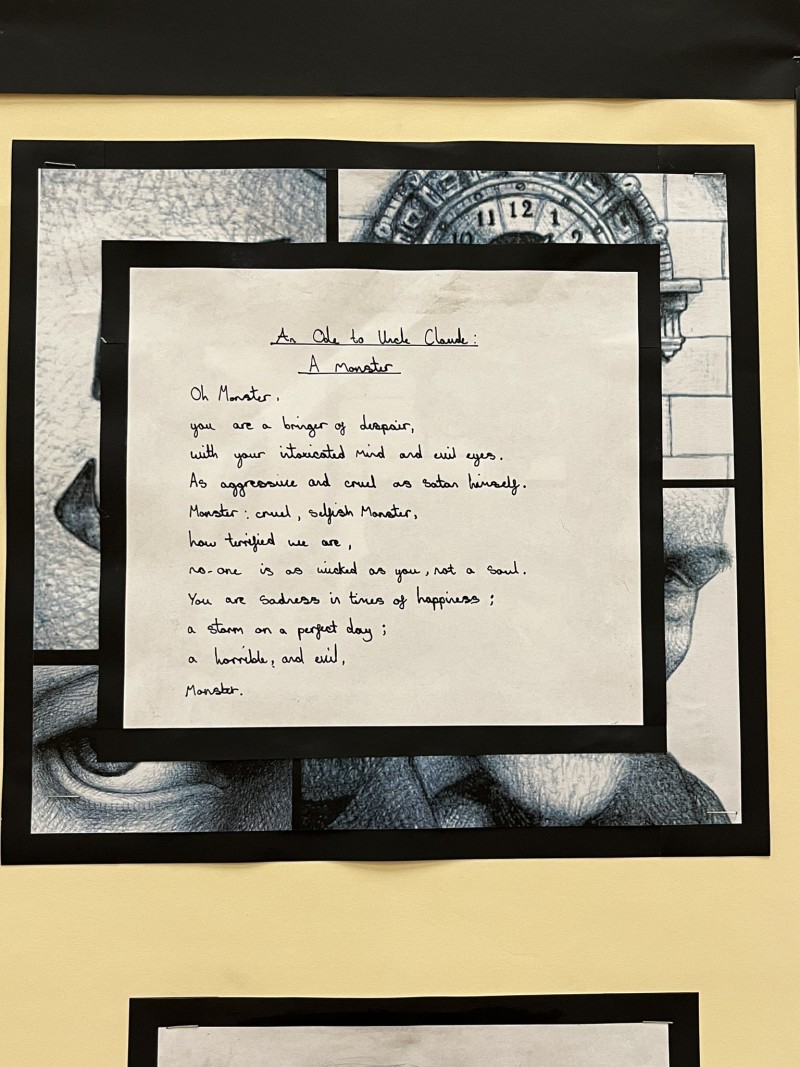 11 12 1
10 2
An Ode to Uncle Claude:
A Monster
Oh Monster,
you are a bringer of despair,
with your intoxicated mind and evil eyes.
As aggressive and cruel as satan himself.
Monster: cruel, selfish Monster,
how terrified we are,
no-one is as wicked as you, not a soul.
You are sadness in times of happiness;
a storm on a perfect day;
a horrible, and evil,
Monster.